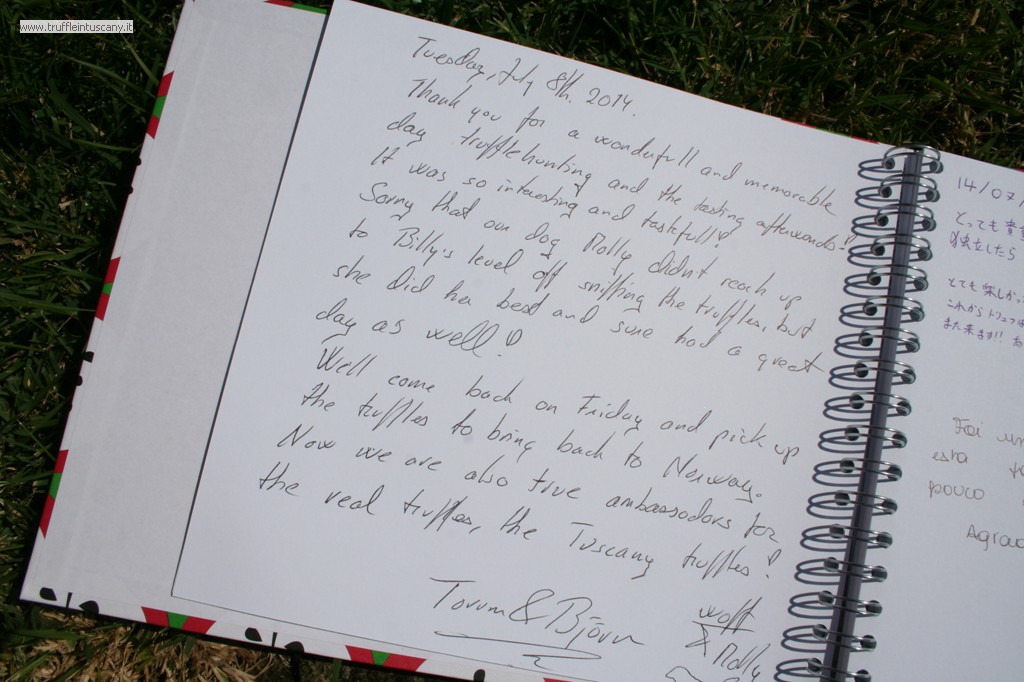 www.truffleintuscany.it
Tuesday, July 8th. 2014.
Thank you for a wonderfull and memorable
day trufflehunting and the tasting afterwards!
It was so interesting and tastefull!
Sorry that our dog Molly didn't reach up
to Billy's level off sniffing the truffles, but
she did her best and sure had a great
day as well!
We'll come back on Friday and pick up
the truffles to bring back to Norway.
Now we are also true ambassadors for
the real truffles, the Tuscany truffles!
Torunn & Bjørn
woff
Molly
14/07/
とっても貴重
独立したら
とても楽しかっ
これからトリュフは
また来ます!! あ
Foi um
esta
pouco
Agrad